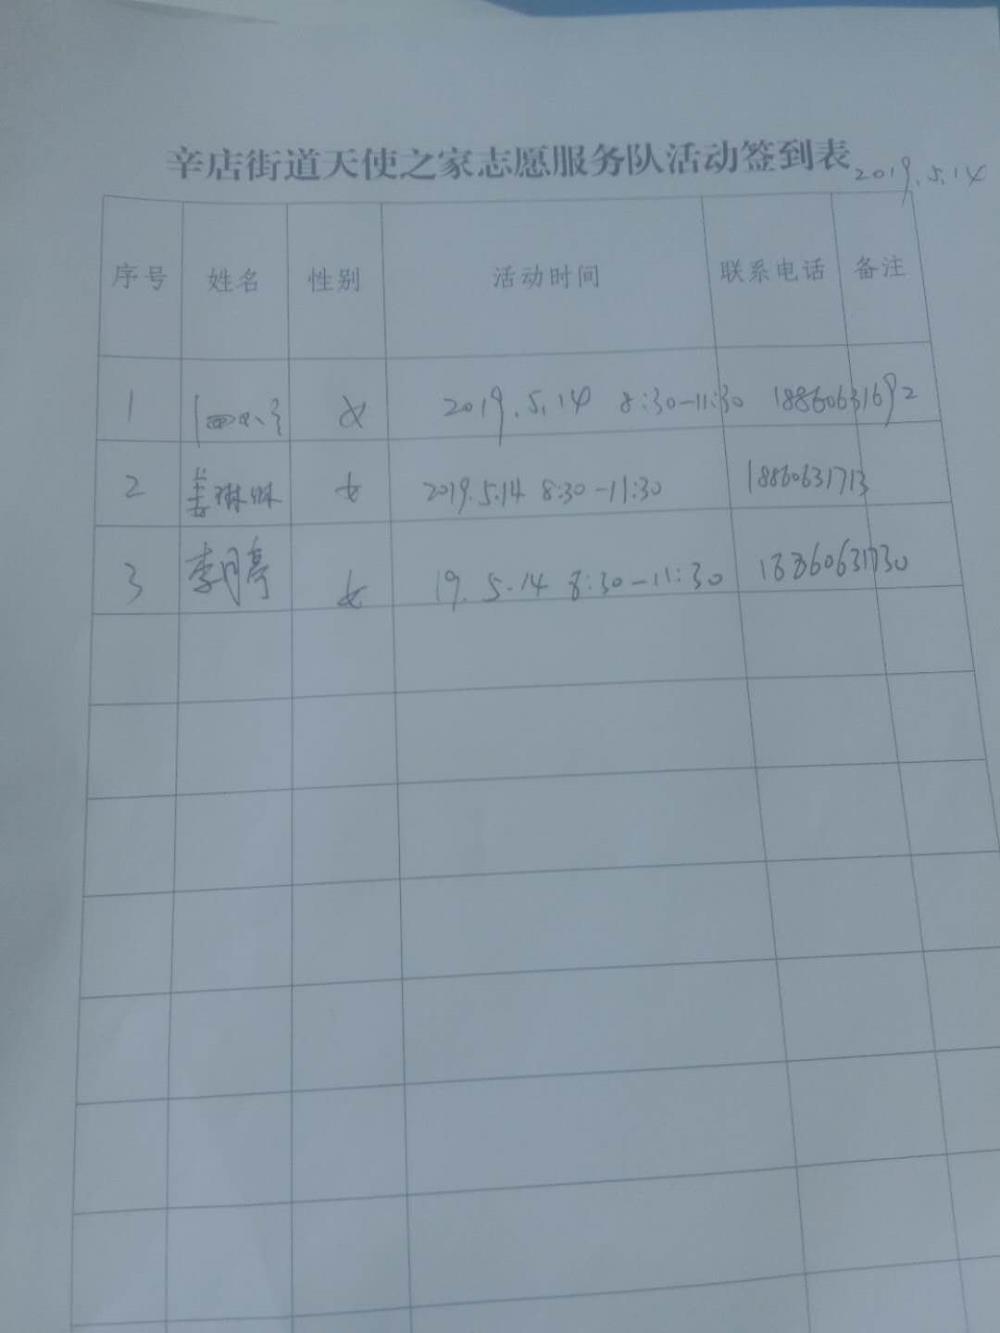 辛店街道天使之家志愿服务队活动签到表 2019.5.14
序号 姓名 性别 活动时间 联系电话 备注
1 女 2019.5.14 8:30-11:30 18860631692
2 姜琳琳 女 2019.5.14 8:30-11:30 18860631713
3 李月亭 女 19.5.14 8:30-11:30 18860631730